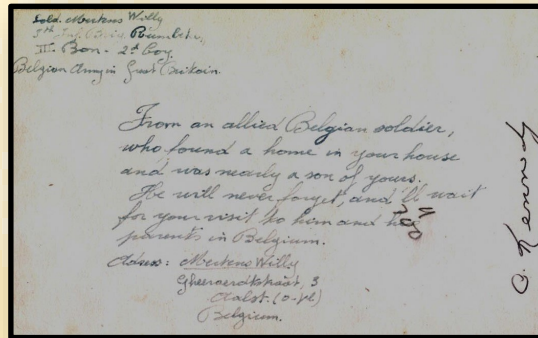 Sold. Mertens Willy
5th Inf. Brig.
II. Bon. - 2d Coy.
Belgian Army in Great Britain.
From an allied Belgian soldier,
who found a home in your house
and was nearly a son of yours.
He will never forget, and'll wait
for your visit to him and his
parents in Belgium.
Adress: Mertens Willy
3
Aalst. (O-Vl)
Belgium.
Kennedy